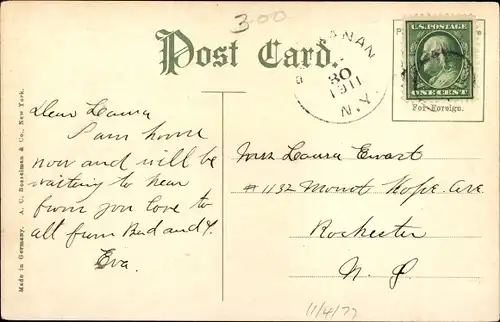 300
Post Card.
BUCHANAN
30
1911
N.Y.
U.S. POSTAGE
ONE CENT
For Foreign.
Dear Laura
I am home
now and will be
waiting to hear
from you love to
all from Bud and Y.
Eva.
Miss Laura Ewart
# 1132 Mount Hope Ave
Rochester
N. Y
Made in Germany. A. C. Bosselman & Co., New York.
11/4/77